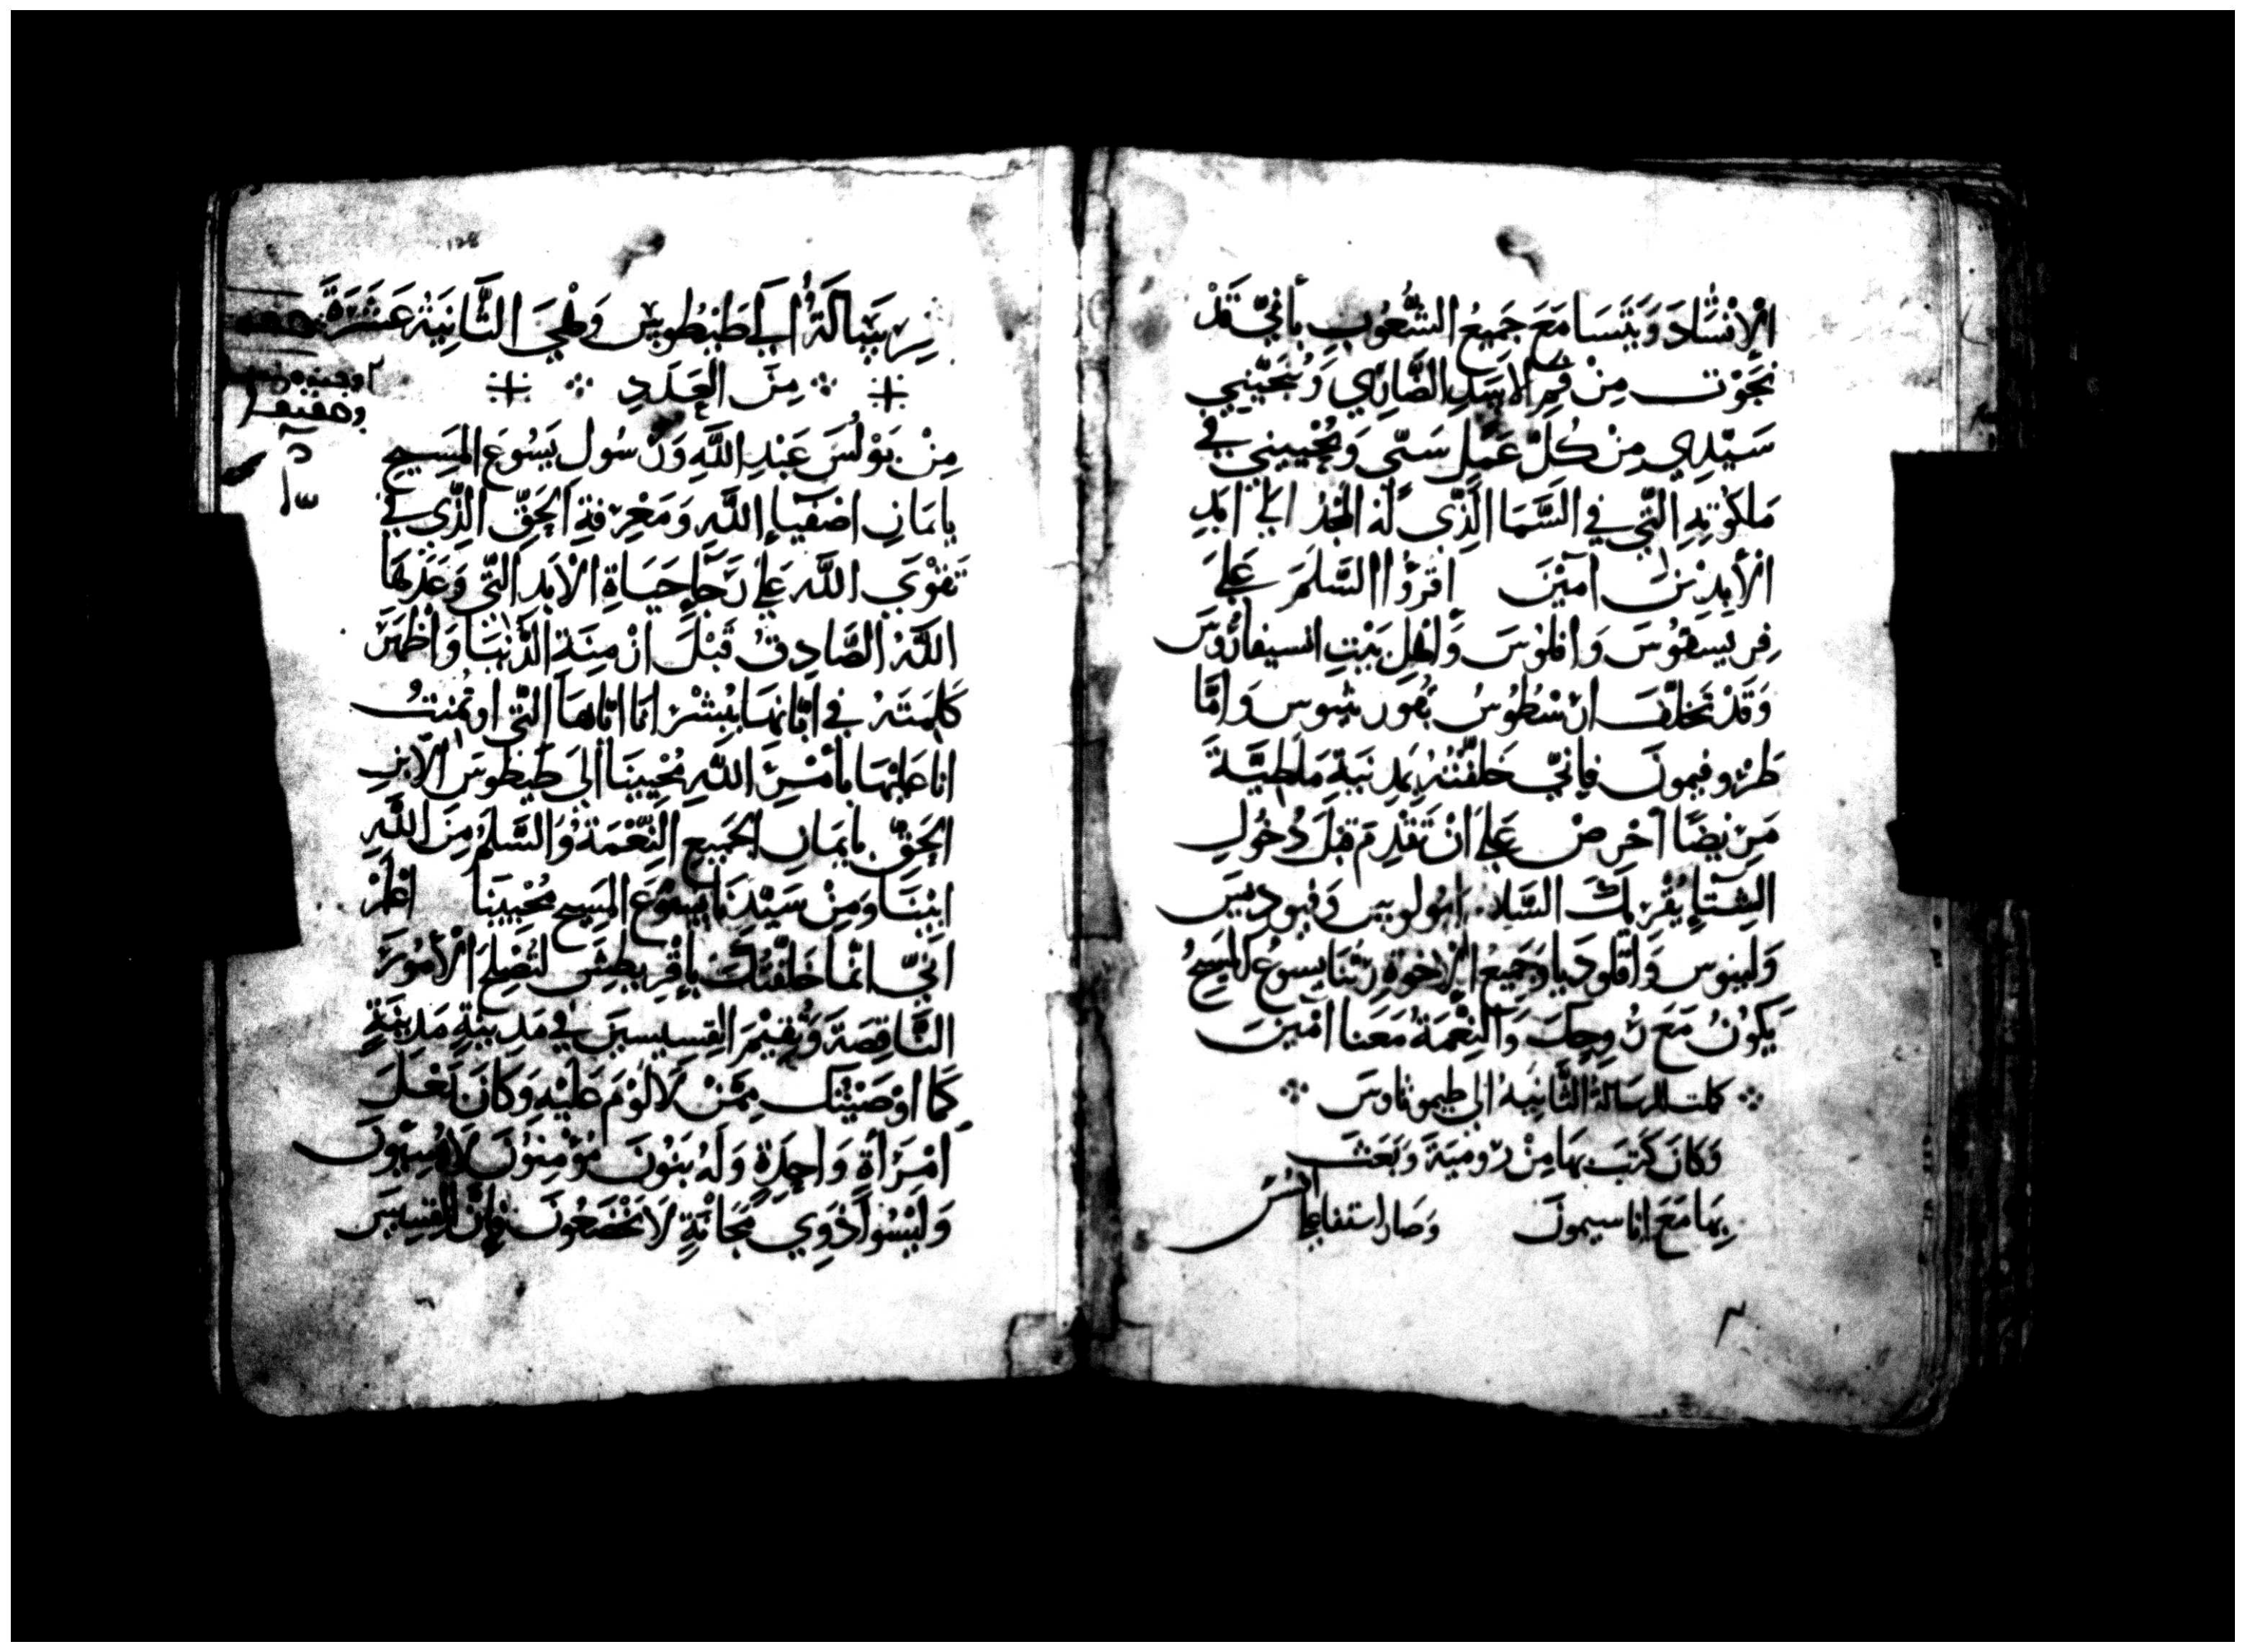 الْاِنْسَادَ وَيَتَسَا مَعَ جَمِيعُ الشُّعُوبِ بِأَنِّي قَدْ
نَجَوْت مِنْ فَمِ الاسَدِ الضَّارِي وَيُنَجِّيَنِي
سَيِّدِي مِنْ كُلِّ عَمَلٍ سَيِّى وَيُحْيِينِي فِي
مَلَكُوتِهِ الَّتِي فِي السَّمَا الَّذِى لَهُ الْمَجْدُ الَى ابَدِ
الْأَبِدِيْنَ امَيْنَ اقرَوُا السَّلَمَ عَلَى
فِرِيسَقِلُوسَ وَاقلوسَ وَأَهْلِ بَيْتِ انسيفارُوسَ
وَقَدْ تَخَلَّفَ ارَسْطُوسُ بِقُورنثيوس وَامَّا
طرُوفيمونَ فَإِنِّي خَلَّفْتُهُ بِمَدِينَةِ مَلَطِيَّةَ
مَرِيْضًا اَحْرِصْ عَلَى اَنْ تَقْدِمَ قَبْلَ دُخُولِ
الشِّتَاءِ يُقْرِيكَ السَّلام ابُولوبيس وَفيوديس
وَلينوس وَاقلوديا وَجَمِيعُ الْاخوَةِ رَبُّنَا يسوع المَسِيحُ
يَكُونُ مَعَ رُوحِكَ وَالنِّعْمَةُ مَعَنا امِينَ
كملت الرسَالةُ الثَّانِيَهُ الى طيموثاوسَ
وَكَانَ كَتَبَ بِهَا مِنْ رُومِيَةَ وَبَعَثَ
بِهَا مَعَ اناسيمونَ وَصَار اسقفا عِ
رِسَالَةُ الَى طِيطُوسَ وَهِيَ الثَّانِيَةَ عَشَرَةَ
مِنَ العَدَدِ
مِنْ بَوْلُسَ عَبْدِ اللَّهِ وَرَسُولِ يَسُوعَ المَسِيحِ
بِايمَانِ اصْفِيَاءِ اللَّهِ وَمَعْرِفَةِ الحَقِّ الَّذِى فِي
تَقْوَي اللَّهِ عَلَى رَجَاءِ حَيَاةِ الْابَدِ الَّتِي وَعَدَ بِهَا
اللَّهُ الصَّادِقُ قَبْلَ ازْمِنَةِ الدُّنْيَا وَاَظْهَرَ
كَلِمَتَهُ فِي ابَّانِهَا بِبُشْرَانَا ايَّاهَا الَّتِي اوتُمِنتُ
انا عَلَيْهَا بِأَمْرِ اللَّهِ مُحْيِينَا اِلَى طَيطوسَ الْابْنِ
الحَقِّ بِايمَانِ الجَمِيعِ النِّعْمَةُ وَالسَّلَمُ مِنَ اللَّهِ
ابِينَا وَمِنْ سَيِّدِنَا يَسُوعَ المَسِيحِ مُحْيِينَا اعْلَمْ
انّي انّمَا خَلَّفْتُكَ بِاقْرِيطِشَ لتُصْلِحَ الْأُمُورَ
النَّاقِصَةَ وَتُقِيْمَ القِسِيسِينَ فِي مَدِينَةٍ مَدِينَةٍ
كَمَا اوْصَيْتُكَ مِمَّنْ لَا لَوْمَ عَلَيْهِ وَكَانَ بَعْلَ
امْرَأةٍ وَاحِدَةٍ وَلَهُ بَنُونَ مُؤْمِنُونَ لَا يُسَبُّونَ
وَلَيْسُوا ذَوِي مَجَانَةٍ لَا تَخْضَعُونَ فَإِنَّ القسيسَ